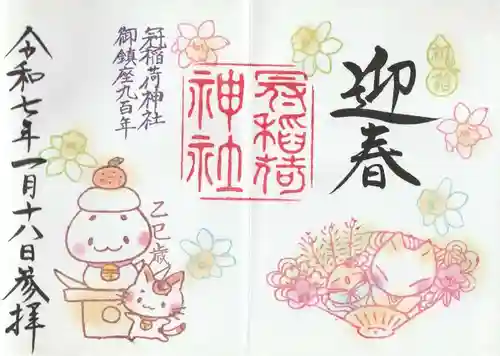 迎春
冠稲荷
神社
冠稲荷神社
御鎮座九百年
乙巳歳
令和七年一月十八日参拝